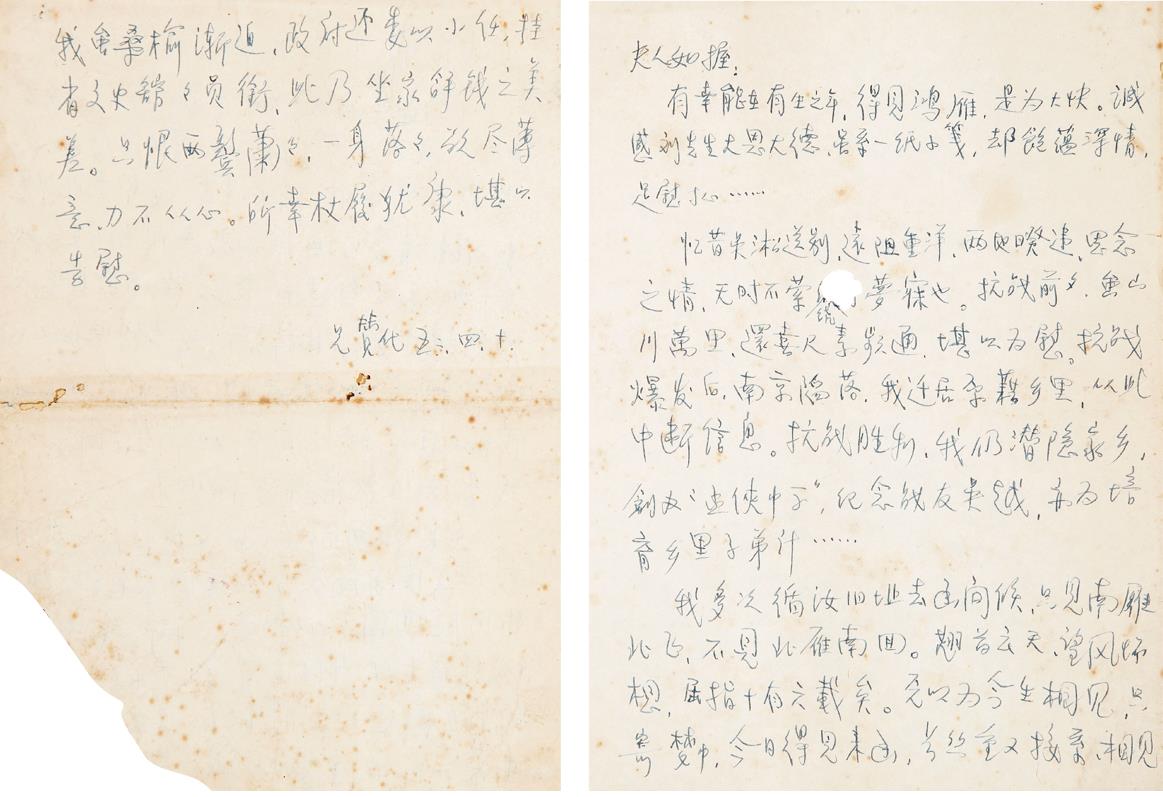 夫人如握：
有幸能在有生之年，得见鸿雁，是为大快。诚
感刘先生大恩大德，虽系一纸子笺，却饱蕴深情，
足慰我心……
忆昔吴淞送别，遠阻重洋，两地暌违，思念
之情，无时不萦绕 夢寐也。抗战前夕，虽山
川萬里，還喜尺素频通，堪以为慰。抗战
爆发后，南京陷落，我迁居 藉乡里，从此
中断信息。抗战胜利，我仍潜隐家乡，
創办“孟侠中学”，纪念战友吴越，亦为培
育乡里子弟计……
我多次循汝旧址去函问候，只见南雁
北飞，不见北雁南回。翘首云天，望风怀
想，屈指十有六载矣。 以为今生相见，只
寄梦中，今日得见来函， 丝重又接 ，相见
我虽桑榆渐迫，政府还委以小任，挂
省文史馆馆员衔，此乃坐家领钱之美
差。只恨两鬓蕭蕭，一身落落，欲尽薄
意，力不从心。所幸杖履犹康，堪以
告慰。
兄贊化 五六.四.十.